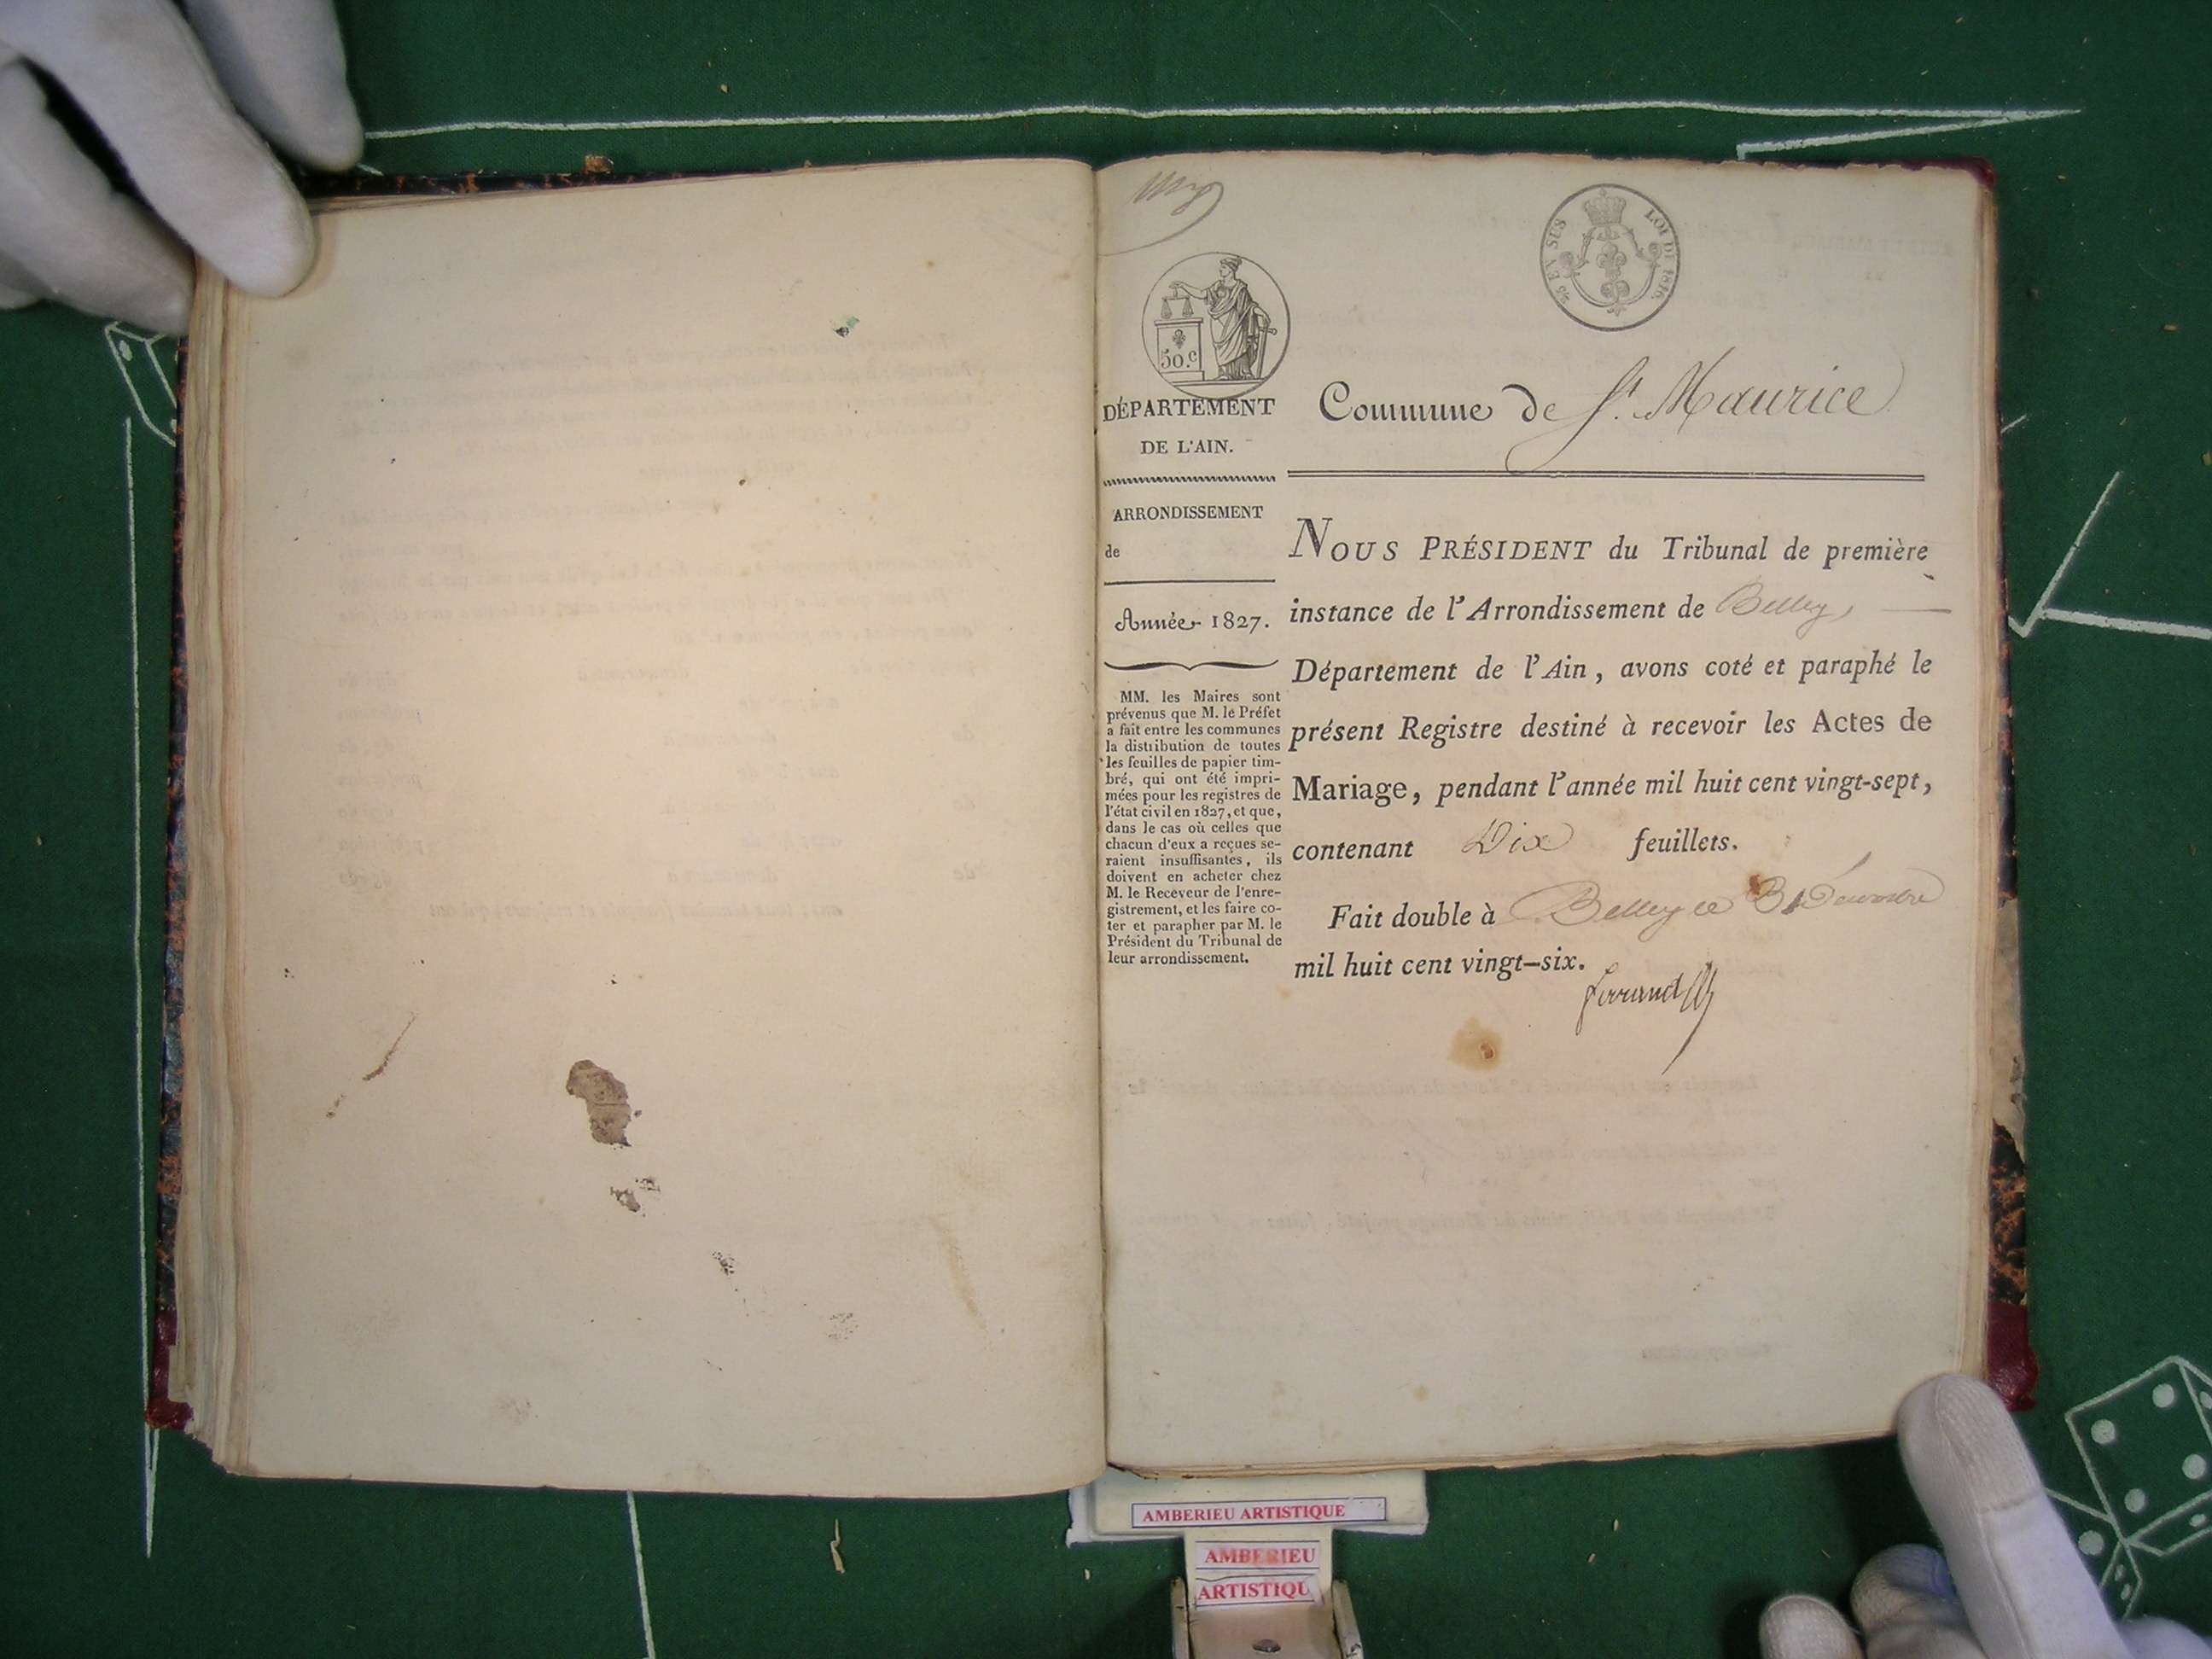 50.c
¼ EN SUS LOI DE 1816.
DÉPARTEMENT
DE L'AIN.
ARRONDISSEMENT
de
Année 1827.
MM. les Maires sont
prévenus que M. le Préfet
a fait entre les communes
la distribution de toutes
les feuilles de papier tim-
bré, qui ont été impri-
mées pour les registres de
l'état civil en 1827, et que,
dans le cas où celles que
chacun d'eux a reçues se-
raient insuffisantes, ils
doivent en acheter chez
M. le Receveur de l'enre-
gistrement, et les faire co-
ter et parapher par M. le
Président du Tribunal de
leur arrondissement.
Commune de St. Maurice
NOUS PRÉSIDENT du Tribunal de première
instance de l'Arrondissement de Belley,
Département de l'Ain, avons coté et paraphé le
présent Registre destiné à recevoir les Actes de
Mariage, pendant l'année mil huit cent vingt-sept,
contenant Dix feuillets.
Fait double à Belley ce Décembre
mil huit cent vingt-six.
AMBERIEU ARTISTIQUE
AMBERIEU
ARTISTIQU